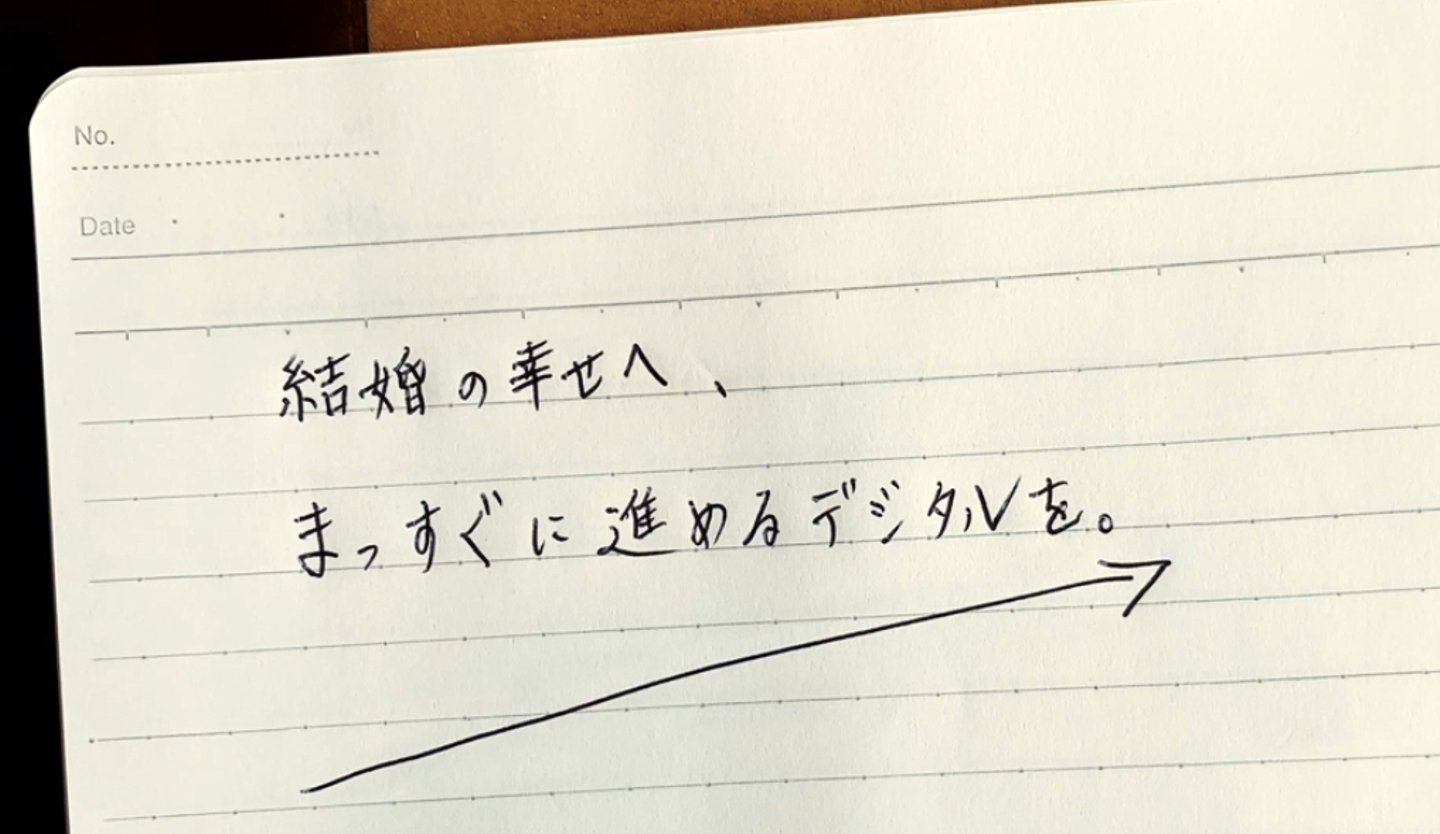 No.
Date
結婚の幸せへ、
まっすぐに進めるデジタルを。